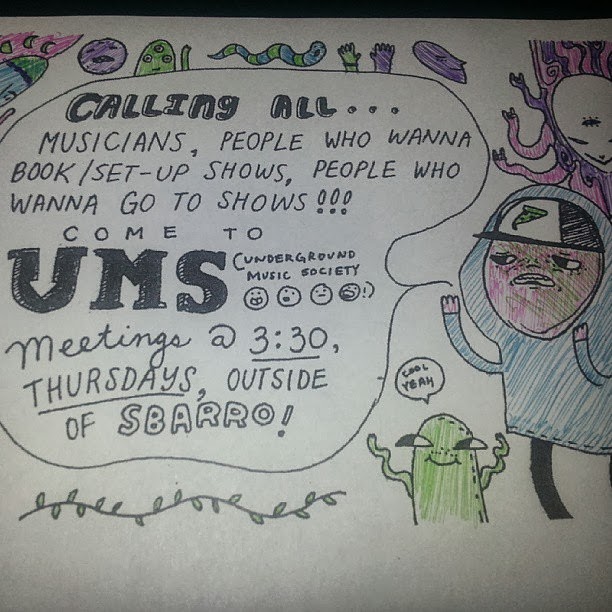 CALLING ALL...
MUSICIANS, PEOPLE WHO WANNA
BOOK/SET-UP SHOWS, PEOPLE WHO
WANNA GO TO SHOWS!!!
COME TO
UMS (UNDERGROUND
MUSIC SOCIETY
!)
Meetings @ 3:30,
THURSDAYS, OUTSIDE
OF SBARRO!
COOL
YEAH